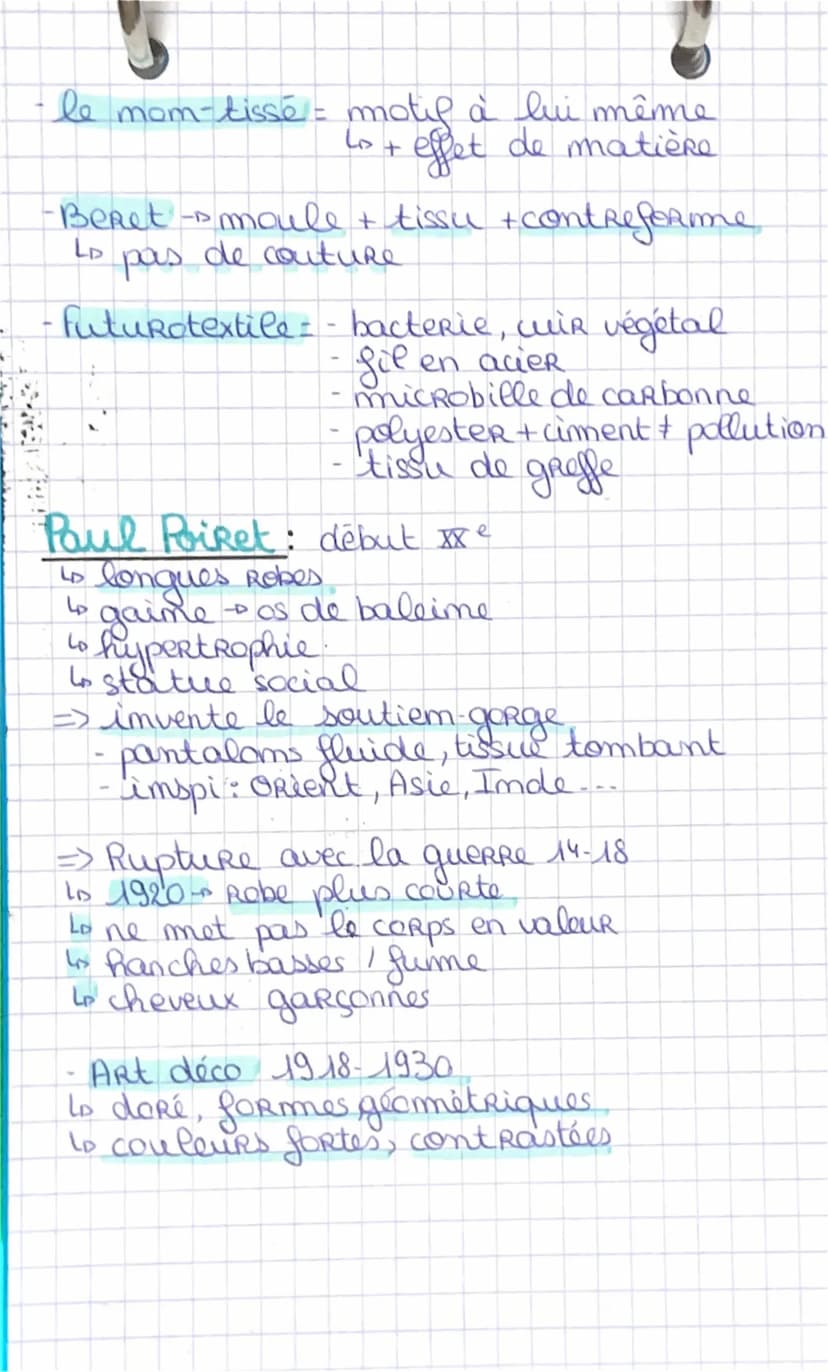 - le non-tissé = motif à lui même
↳ + effet de matière
- Beret → moule + tissu + contreforme
↳ pas de couture
- futurotextile = - bacterie, cuir végétal
- fil en acier
- microbille de carbonne
- polyester + ciment ≠ pollution
- tissu de greffe
Paul Poiret : début XXe
↳ longues robes
↳ gaine → os de baleine
↳ hypertrophie.
↳ statue social
=> invente le soutien-gorge
- pantalons fluide, tissue tombant
- inspi : Orient, Asie, Inde...
=> Rupture avec la guerre 14-18
↳ 1920 → robe plus courte
↳ ne met pas le corps en valeur
↳ hanches basses / fume
↳ cheveux garçonnes
- Art déco 1918-1930
↳ doré, formes géométriques
↳ couleurs fortes, contrastées